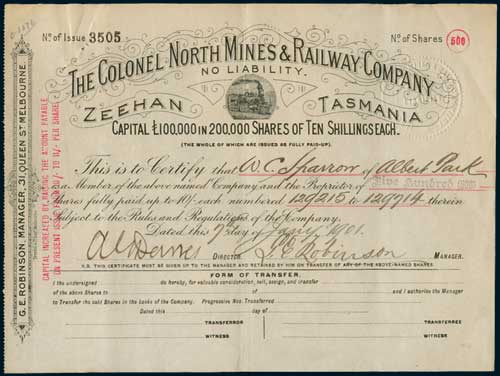 No. of Issue 3505
No. of Shares 500
THE COLONEL NORTH MINES & RAILWAY COMPANY
NO LIABILITY.
ZEEHAN TASMANIA
CAPITAL £100,000 IN 200,000 SHARES OF TEN SHILLINGS EACH.
(THE WHOLE OF WHICH ARE ISSUED AS FULLY PAID-UP.)
This is to Certify that W. C. Sparrow of Albert Park
is a Member of the above named Company and the Proprietor of Five Hundred
Shares fully paid up to 10/- each numbered 129215 to 129714 therein
Subject to the Rules and Regulations of the Company.
Dated this day of Jany 1901.
DIRECTOR G E Robinson MANAGER.
N.B. THIS CERTIFICATE MUST BE GIVEN UP TO THE MANAGER AND RETAINED BY HIM ON TRANSFER OF ANY OF THE ABOVE-NAMED SHARES.
FORM OF TRANSFER.
I the undersigned do hereby, for valuable consideration, sell, assign, and transfer
of the above Shares to and I authorise the Manager
to Transfer the said Shares in the books of the Company. Progressive Nos. Transferred
Dated this day of
TRANSFEROR TRANSFEREE
WITNESS WITNESS
G. E. ROBINSON, MANAGER, 31, QUEEN ST MELBOURNE.
CAPITAL INCREASED BY RAISING THE AMOUNT PAYABLE
ON PRESENT ISSUE FROM TO PER SHARE